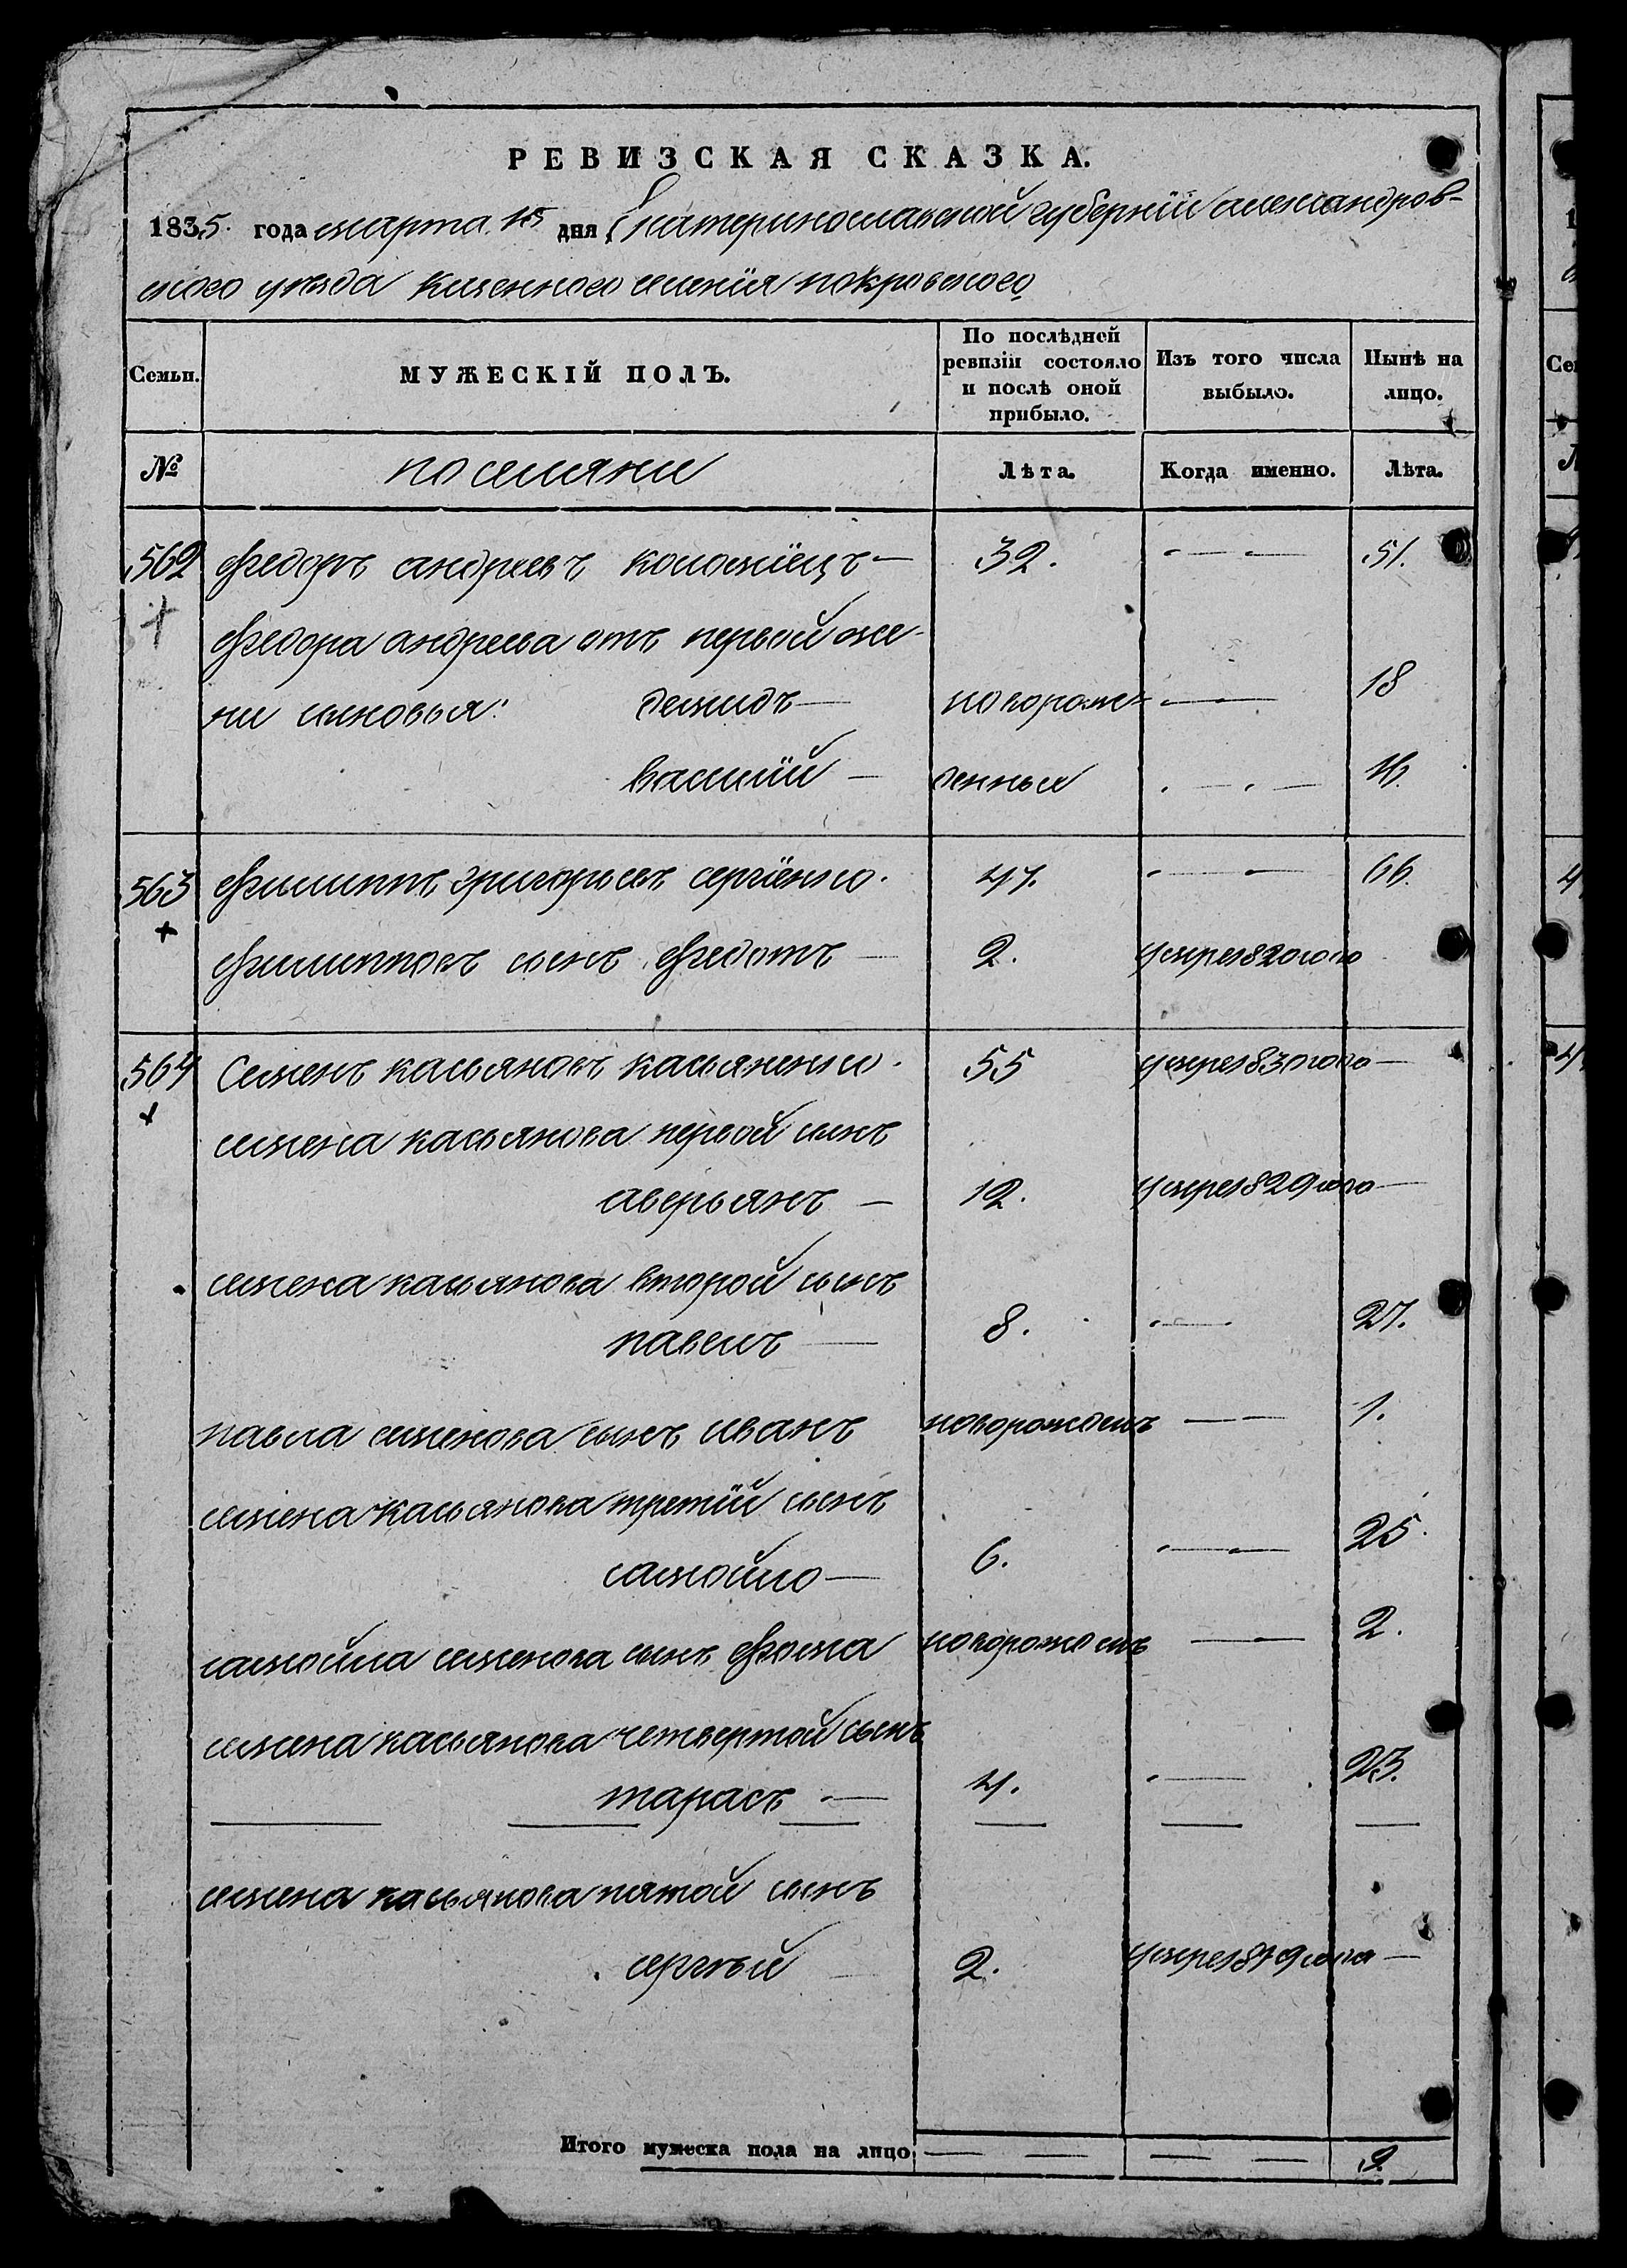 РЕВИЗСКАЯ СКАЗКА.
1835. года марта 15 дня Екатеринославской губернiи александров-
ского уезда казенного селенiя покровского
Семьи. МУЖЕСКІЙ ПОЛЪ. По послѣдней ревизіи состояло и послѣ оной прибыло. Изъ того числа выбыло. Нынѣ на лицо.
№ поселяни Лѣта. Когда именно. Лѣта.
562 Федоръ андреевъ коломiецъ — 32. — — 51.
Федора андреева отъ первой же-
ни сыновья: демидъ — новорож- — 18
василiй — денныя — 16.
563 Филиппъ григорьевъ сергiенко. 47. — — 66.
Филипповъ сынъ Федотъ — 2. умре 1820 года
564 Семенъ касьяновъ касьяненко. 55 умре 1830 года —
семена касьянова первой сынъ
аверьянъ — 12. умре 1829 года —
семена касьянова второй сынъ
павелъ — 8. — 27.
павла семенова сынъ иванъ новорожденъ — 1.
семена касьянова третiй сынъ
самойло — 6. — 25.
самойла семенова сынъ Фома новорожденъ — 2.
семена касьянова четвертой сынъ
тарасъ — 4. — 23.
семена касьянова пятой сынъ
сергѣй 2. умре 1819 года —
Итого мужеска пола на лицо — — — — 9.